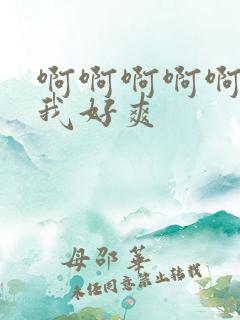 啊啊啊啊啊
我好爽
母邵华
未经同意禁止转载